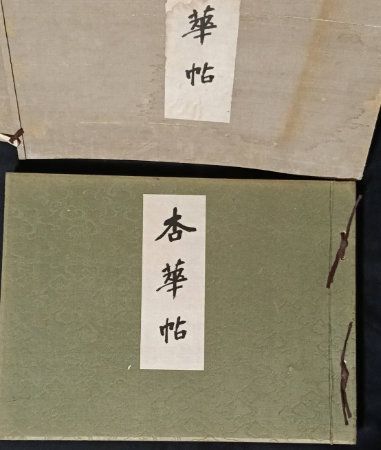 華帖
杏華帖